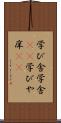 学び舎学舎
学びや
庠